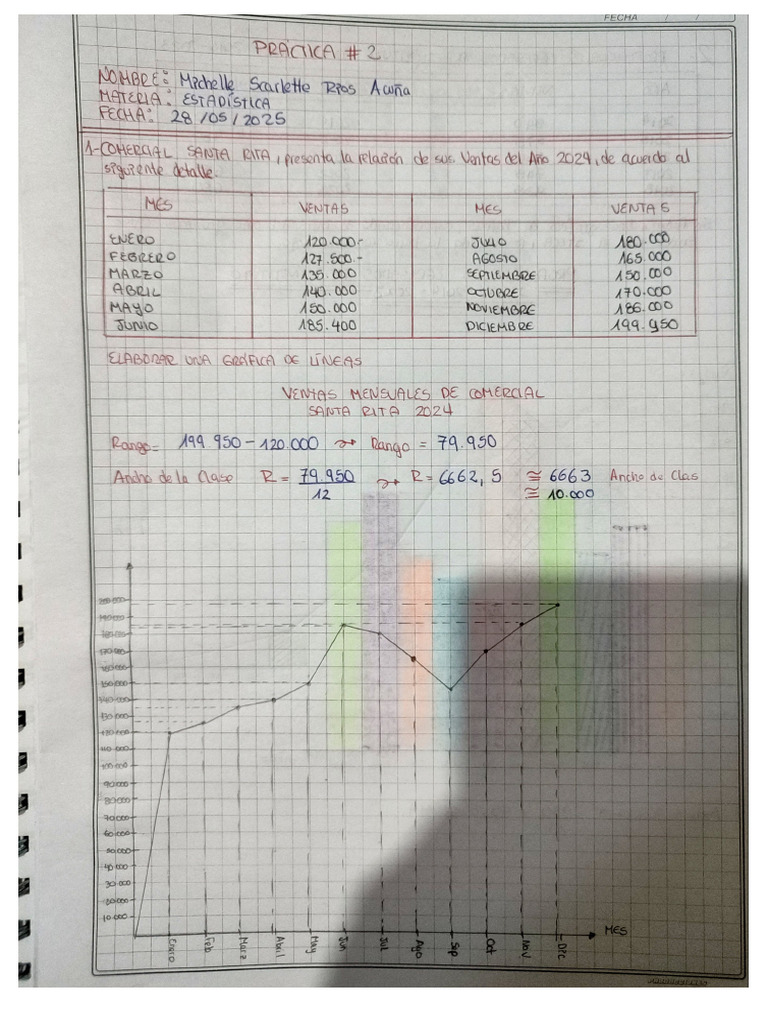 FECHA / /
PRÁCTICA # 2
NOMBRE: Michelle Scarlette Rios Acuña
MATERIA: ESTADÍSTICA
FECHA: 28 / 05 / 2025
1-COMERCIAL SANTA RITA, presenta la relación de sus Ventas del Año 2024, de acuerdo al
siguiente detalle.
MES VENTAS MES VENTAS
ENERO 120.000.- JULIO 180.000
FEBRERO 127.500.- AGOSTO 165.000
MARZO 135.000 SEPTIEMBRE 150.000
ABRIL 140.000 OCTUBRE 170.000
MAYO 150.000 NOVIEMBRE 186.000
JUNIO 185.400 DICIEMBRE 199.950
ELABORAR UNA GRÁFICA DE LÍNEAS
VENTAS MENSUALES DE COMERCIAL
SANTA RITA 2024
Rango= 199.950 - 120.000 → Rango = 79.950
Ancho de la Clase R = 79.950 / 12 → R = 6662,5 ≅ 6663 Ancho de Clas
≅ 10.000
200.000
190.000
180.000
170.000
160.000
150.000
140.000
130.000
120.000
110.000
100.000
90.000
80.000
70.000
60.000
50.000
40.000
30.000
20.000
10.000
Enero Feb Marz Abril May Jun Jul Ago Sep Oct Nov Dic MES